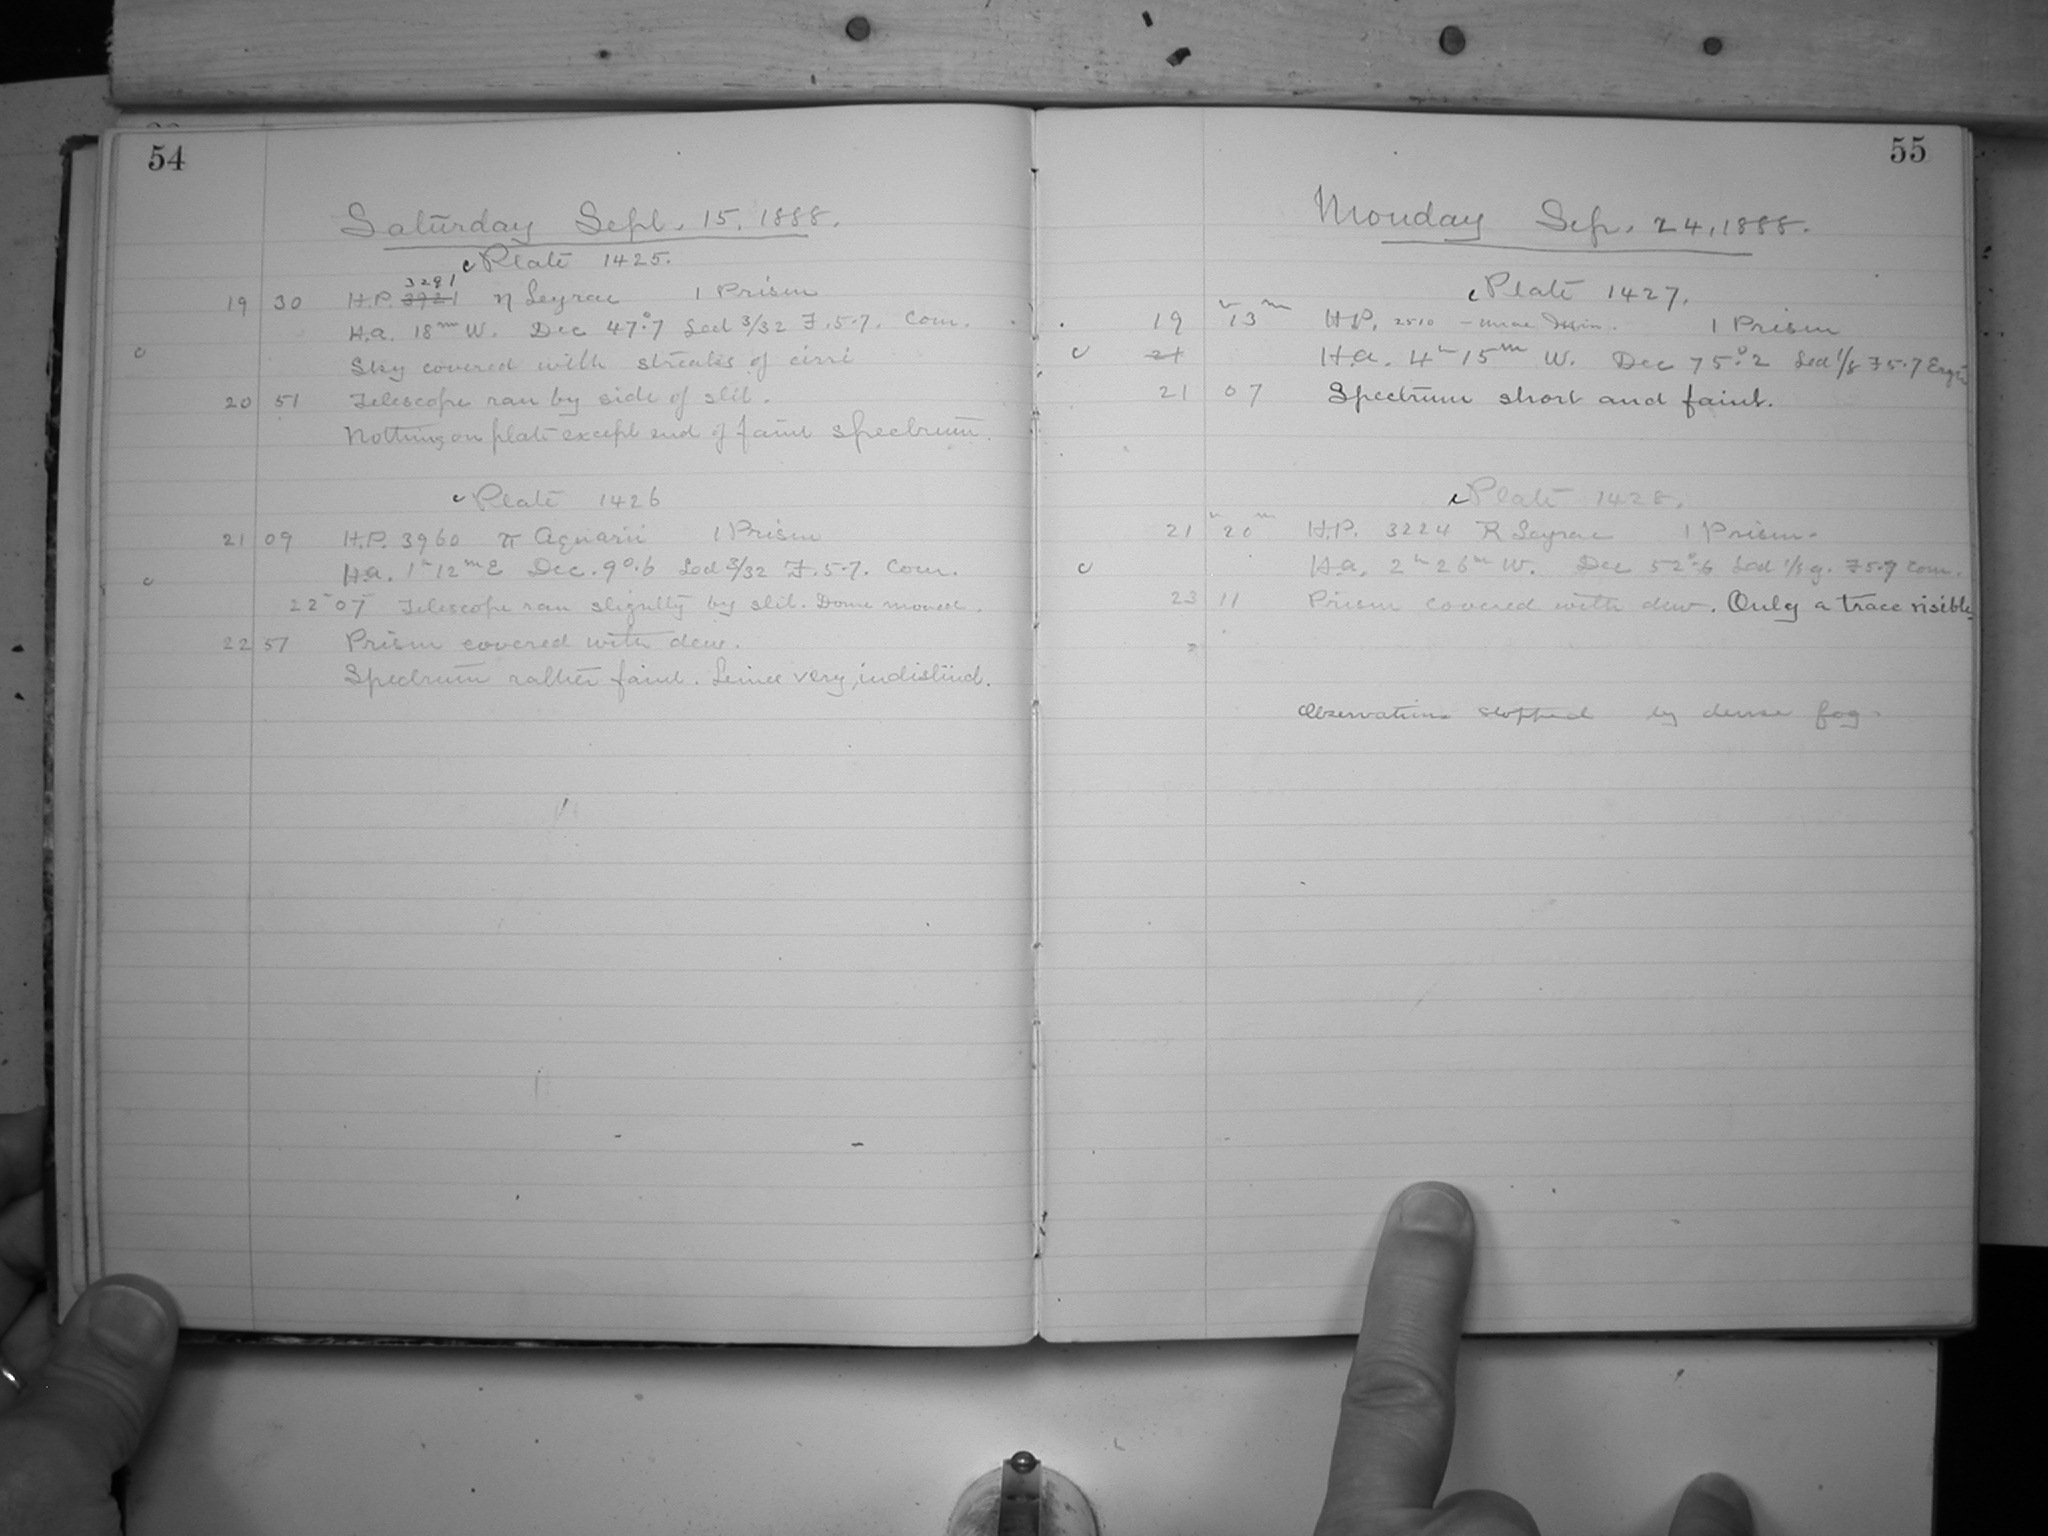 54
Saturday Sept. 15, 1888.
c Plate 1425.
3291
19 30 H.P. 3921 η Lyrae 1 Prism
H.a. 18m W. Dec 47°.7 Sed 3/32 F.5.7. Com.
c Sky covered with streaks of cirri
20 51 Telescope ran by side of slit.
Nothing on plate except end of faint spectrum.
c Plate 1426
21 09 H.P. 3960 π Aquarii 1 Prism
H.a. 1h 12m E Dec. 9°.6 Sed 3/32 F.5.7. Com.
c
22 07 Telescope ran slightly by slit. Dome moved.
22 51 Prism covered with dew.
Spectrum rather faint. Lines very indistinct.
55
Monday Sep. 24, 1888.
c Plate 1427.
19h 13m H.P. 2510 1 Prism
c 21 H.a. 4h 15m W. Dec 75°.2 Sed 1/8 F5.7
21 07 Spectrum short and faint.
c Plate 1428.
21h 20m H.P. 3224 R Lyrae 1 Prism.
c H.a. 2h 26m W. Dec 52°.6 Sed 1/8 g. F5.7 Com.
23 11 Prism covered with dew. Only a trace visible
Observations stopped by dense fog.